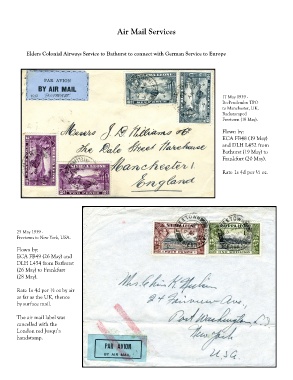 Air Mail Services
Elders Colonial Airways Service to Bathurst to connect with German Service to Europe
PAR AVION
BY AIR MAIL
17 May 1939 -
to Manchester, UK.
Freetown (18 May).
Flown by:
ECA FB48 (19 May)
and DLH L452 from
Bathurst (19 May) to
Frankfurt (20 May).
Rate 1s 4d per ½ oz.
Messrs J D Williams &
The Dale Street Warehouse
Manchester 1
England
25 May 1939 -
Freetown to New York, USA.
Flown by:
ECA FB49 (26 May) and
DLH L454 from Bathurst
(26 May) to Frankfurt
(28 May).
Rate 1s 4d per ½ oz by air
as far as the UK, thence
by surface mail.
The air mail label was
cancelled with the
London red Jusqu'a
handstamp.
24 Fairview Ave
Port Washington
New York
U.S.A.
PAR AVION
BY AIR MAIL